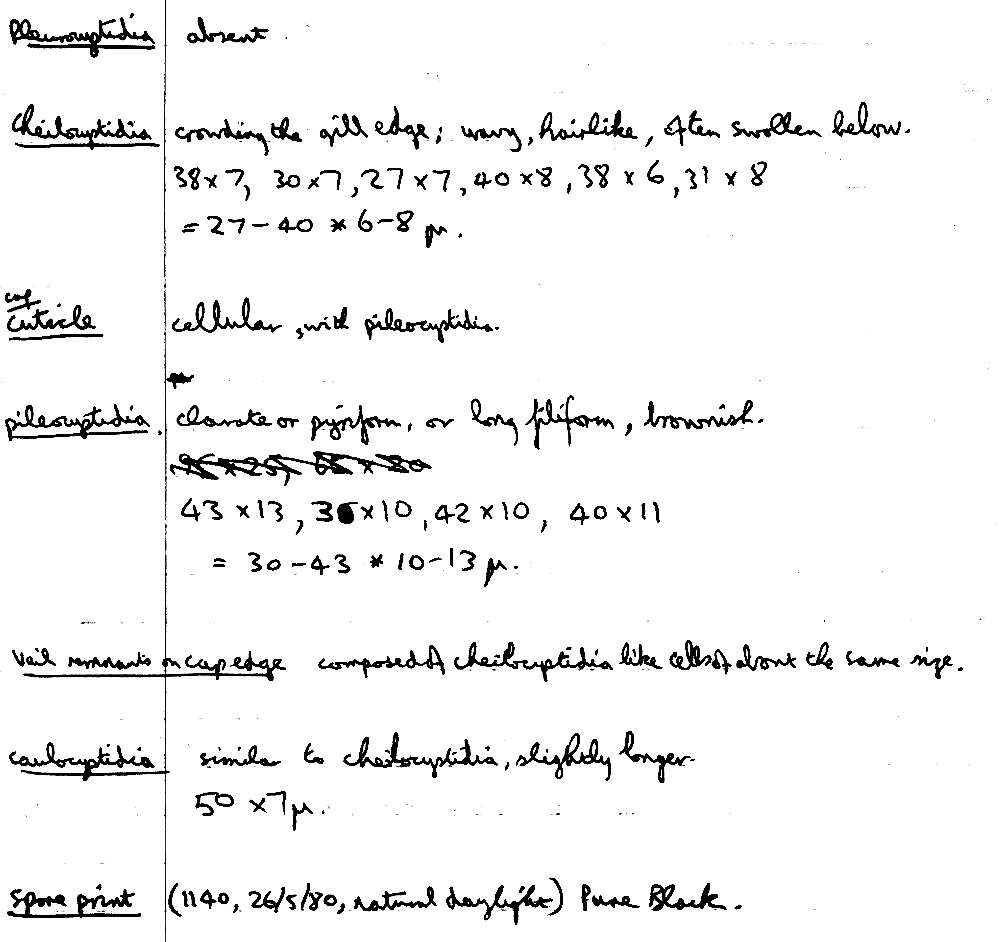 Pleurocystidia absent.
Cheilocystidia crowding the gill edge; wavy, hairlike, often swollen below.
38 x 7, 30 x 7, 27 x 7, 40 x 8, 38 x 6, 31 x 8
= 27 – 40 * 6 – 8 µ.
cap
cuticle cellular, with pileocystidia.
pileocystidia. clavate or pyriform, or long filiform, brownish.
43 x 13, 36 x 10, 42 x 10, 40 x 11
= 30 – 43 * 10 – 13 µ.
Veil remnants on cap edge composed of cheilocystidia like cells of about the same size.
caulocystidia similar to cheilocystidia, slightly longer.
50 x 7 µ.
Spore print (1140, 26/5/80, natural daylight) Pure Black.